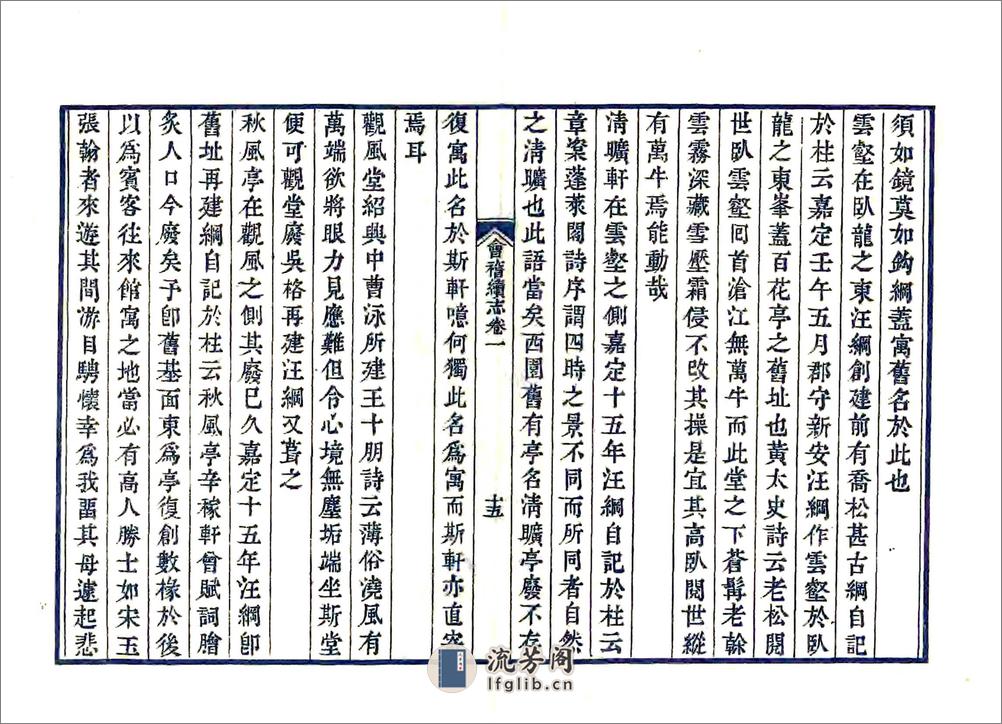 須如鏡莫如鉤綱蓋寓舊名於此也
雲壑在臥龍之東汪綱創建前有喬松甚古綱自記
於柱云嘉定壬午五月郡守新安汪綱作雲壑於臥
龍之東峯蓋百花亭之舊址也黃太史詩云老松閱
世臥雲壑囘首滄江無萬牛而此堂之下蒼髯老榦
雲霧深藏雪壓霜侵不改其操是宜其高臥閱世縱
有萬牛焉能動哉
清曠軒在雲壑之側嘉定十五年汪綱自記於柱云
章楶蓬萊閣詩序謂四時之景不同而所同者自然
之清曠也此語當矣西園舊有亭名清曠亭廢不存
會稽續志卷一
十五
復寓此名於斯軒噫何獨此名為寓而斯軒亦直寄
焉耳
觀風堂紹興中曹泳所建王十朋詩云薄俗澆風有
萬端欲將眼力見應難但令心境無塵垢端坐斯堂
便可觀堂廢吳格再建汪綱又葺之
秋風亭在觀風之側其廢已久嘉定十五年汪綱卽
舊址再建綱自記於柱云秋風亭辛稼軒曾賦詞膾
炙人口今廢矣予卽舊基面東為亭復創數椽於後
以為賓客往來館寓之地當必有高人勝士如宋玉
張翰者來遊其間游目騁懷幸為我畱其毋遽起悲
流芳阁
lfglib.cn